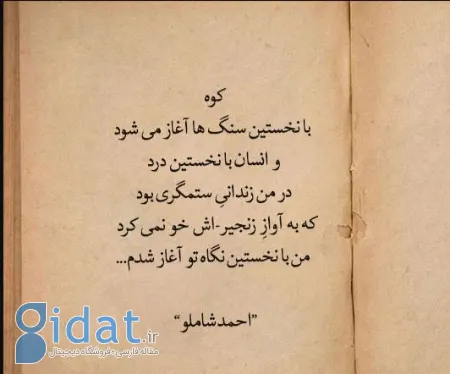 کوه
با نخستین سنگ ها آغاز می شود
و انسان با نخستین درد
در من زندانیِ ستمگری بود
که به آوازِ زنجیر-اش خو نمی کرد
من با نخستین نگاه تو آغاز شدم...
"احمد شاملو"
gidat.ir
مقاله فارسی+فروشگاه دیجیتال